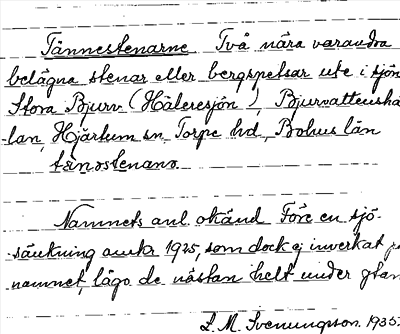 Tännestenarne Två nära varandra
belägna stenar eller bergspetsar ute i sjön
Stora Bjurv (Hälleresjön), Bjurvattenshå-
lan, Hjärtum sn, Torpe hd, Bohus län
tænəstenanə.
Namnets anl. okänd Före en sjö-
sänkning omkr 1925, som dock ej inverkat på
namnet, lågo de nästan helt under ytan
L. M. Svenungsson. 1935.